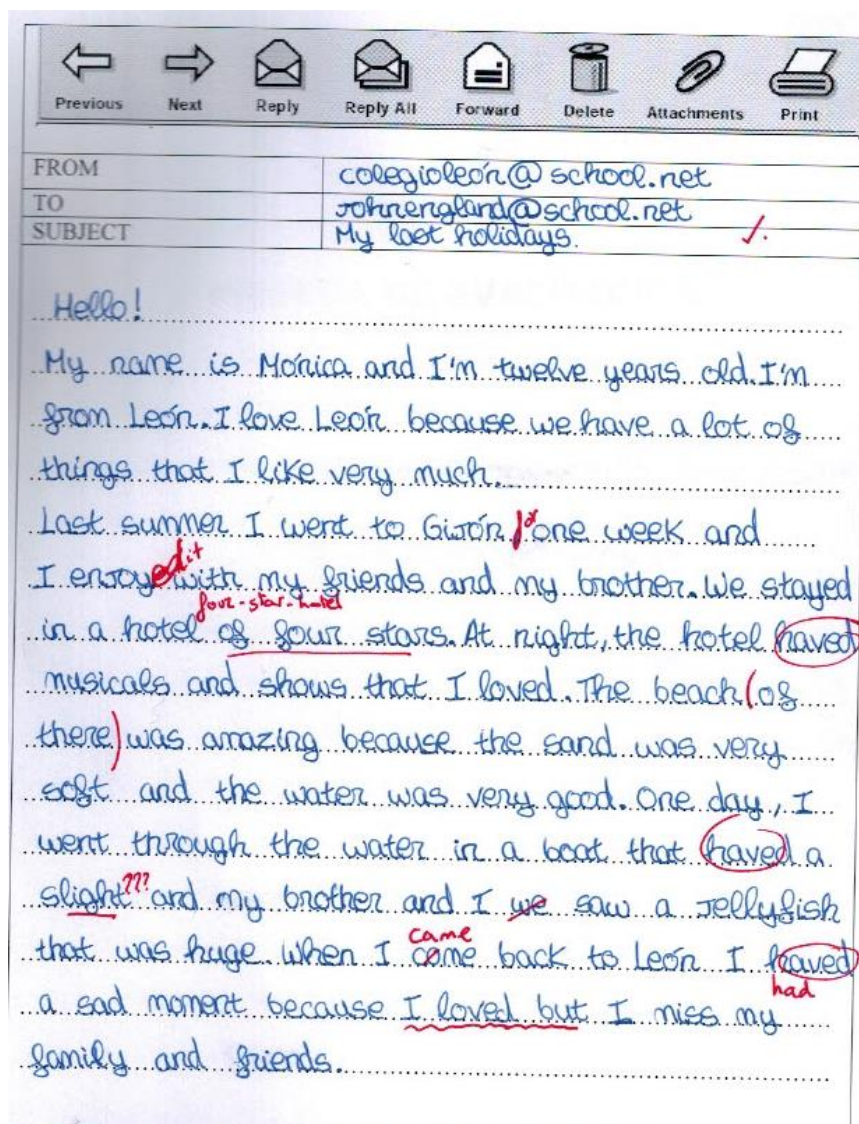 Previous Next Reply Reply All Forward Delete Attachments Print
FROM colegioleón@school.net
TO Johnengland@school.net
SUBJECT My last holidays.
Hello!
My name is Mónica and I'm twelve years old. I'm
from León. I love León because we have a lot of
things that I like very much.
Last summer I went to Gijón for one week and
edit
I enjoy with my friends and my brother. We stayed
four-star-hotel
in a hotel of four stars. At night, the hotel haved
musicals and shows that I loved. The beach (of
there) was amazing because the sand was very
soft and the water was very good. One day, I
went through the water in a boat that haved a
slight ??? and my brother and I we saw a Jellyfish
came
that was huge. When I come back to León I haved
had
a sad moment because I loved but I miss my
family and friends.